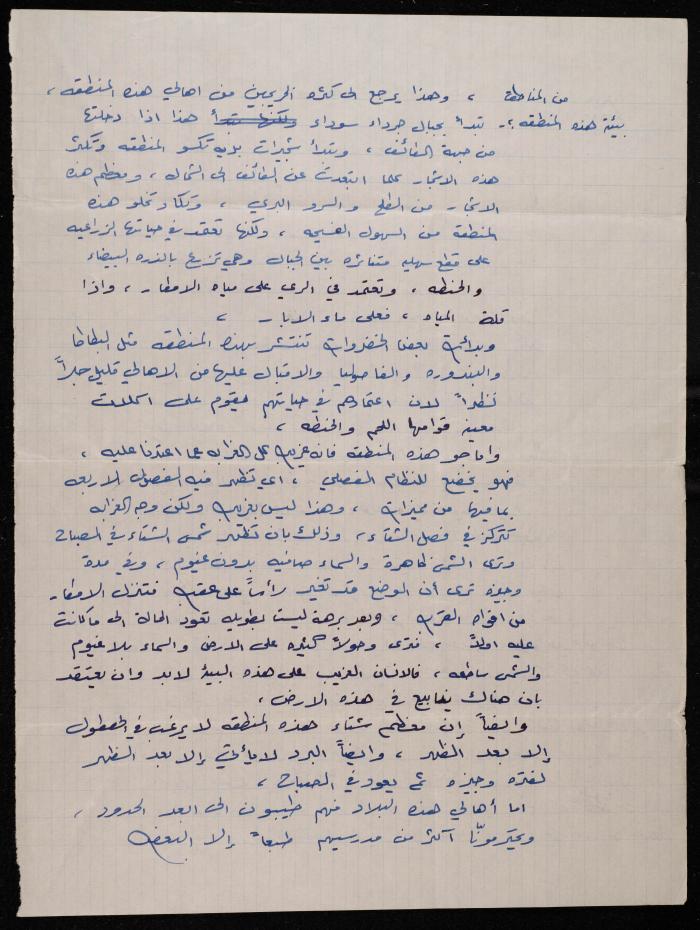 من المناطق ، وهذا يرجع الى كثرة الخريجين من اهالي هذه المنطقه ،
بيئة هذه المنطقه :- تبدأ بجبال جرداء سوداء ولكنها تبدأ هذا اذا دخلتها
من جهة الطائف ، وتبدأ شجيرات بريه تكسو المنطقه وتكثر
هذه الاشجار كلما ابتعدت عن الطائف الى الشمال ، ومعظم هذه
الاشجار من الطلح والسرو البري ، وتكاد تخلو هذه
المنطقة من السهول الفسيحه ، ولكنها تعتمد في حياتها الزراعيه
على قطع سهليه متناثره بين الجبال وهي تزرع بالذره البيضاء
والحنطه ، وتعتمد في الري على مياه الامطار ، واذا
قلة المياه ، فعلى ماء الابار ،
وبدائت بعض الخضروات تنتشر بهذه المنطقه مثل البطاطا
والبندوره والفاصوليا والاقبال عليها من الاهالي قليل جداً
نظراً لان اعتمادهم في حياتهم يقوم على اكلات
معينه قوامها اللحم والحنطه ،
واما جو هذه المنطقه فانه غريب كل الغرابه عما اعتدنا عليه ،
فهو يخضع للنظام الفصلي ، اي تظهر فيه الفصول الاربعه
بما فيها من مميزات ، وهذا ليس بغريب ولكن وجه الغرابه
تتركز في فصل الشتاء ، وذلك بان تظهر شمس الشتاء في الصباح
وترى الشمس ظاهرة والسماء صافيه بدون غيوم ، وفي مدة
وجيزه ترى أن الوضع قد تغير رأساً على عقب فتنزل الامطار
من افواه القرب ، وبعد برهة ليست بطويله تعود الحالة الى ما كانت
عليه اولاً ، فترى وحولاً كثيره على الارض والسماء بلا غيوم
والشمس ساطعه ، فالانسان الغريب على هذه البيئة لابد وان يعتقد
بان هناك ينابيع في هذه الارض ،
وايضاً إن معظم شتاء هذه المنطقه لا يرغب في الهطول
إلا بعد الظهر ، وايضاً البرد لا يأتي إلا بعد الظهر
لفتره وجيزه ثم يعود في الصباح ،
اما أهالي هذه البلاد فهم طيبون الى ابعد الحدود ،
ويحترموننّا أكثر من مدرسيهم طبعاً إلا البعض